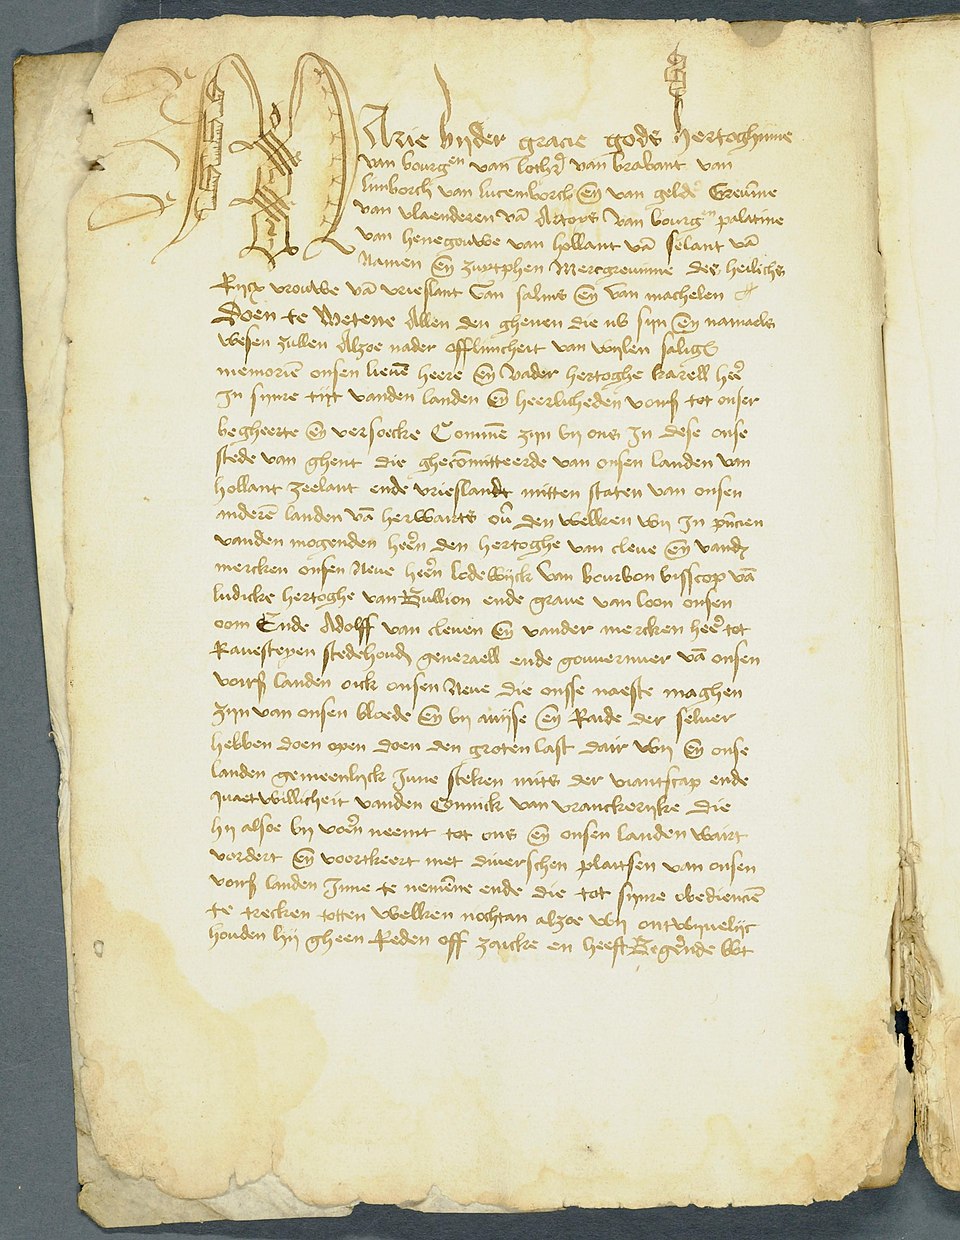 Marie bijder gracie gods hertoghinne
van bourgen van lothr van brabant van
limborch van lucemborch en van geldr Greuinne
van vlaenderen va Artoys van bourgn palatine
van henegouwe van hollant va selant va
Namen en zuytphen Mercgreuinne des heilichs
Rycx vrouwe va vrieslant van salins en van machelen
Doen te Wetene Allen den ghenen die nv syn en namaels
wesen zullen Alzoe nader offliuicheit van wylen salig
memorien onsen lieue heere en vader hertoghe karell heer
In synre tyt vanden landen en heerlicheden vors tot onser
begheerte en versoecke Comen zyn by ons In dese onse
stede van ghent die ghecomitteerde van onsen landen van
hollant zeelant ende vrieslandt mitten staten van onsen
anderen landen va herwaerts ou den welken wy In pncien
vanden mogenden heren den hertoghe van cleue en vand
mercken onsen Neue heren lodewyck van bourbon bisscop va
ludicke hertoghe van Bullion ende graue van loon onsen
oom Ende Adolff van cleuen en vander mercken heer tot
Rauesteyen stedehoud generaell ende gouuerneur va onsen
vors landen oick onsen Neue die onsse naeste maghen
zyn van onsen bloede en by auyse en Rade der seluer
hebben doen open doen den groten last dair wy en onse
landen gemeenlyck Inne steken mits der viantscap ende
quaetwillicheit vanden Connick van vranckeryke die
hy alsoe by voern neemt tot ons en onsen landen wairt
vordert en voortkeert met diuerschen plaetsen van onsen
vors landen Inne te nemene ende die tot synre obediencien
te trecken totten welken nochtan alzoe wy ontwyuelyc
houden hy gheen Reden off zaicke en heeft Begerende wt